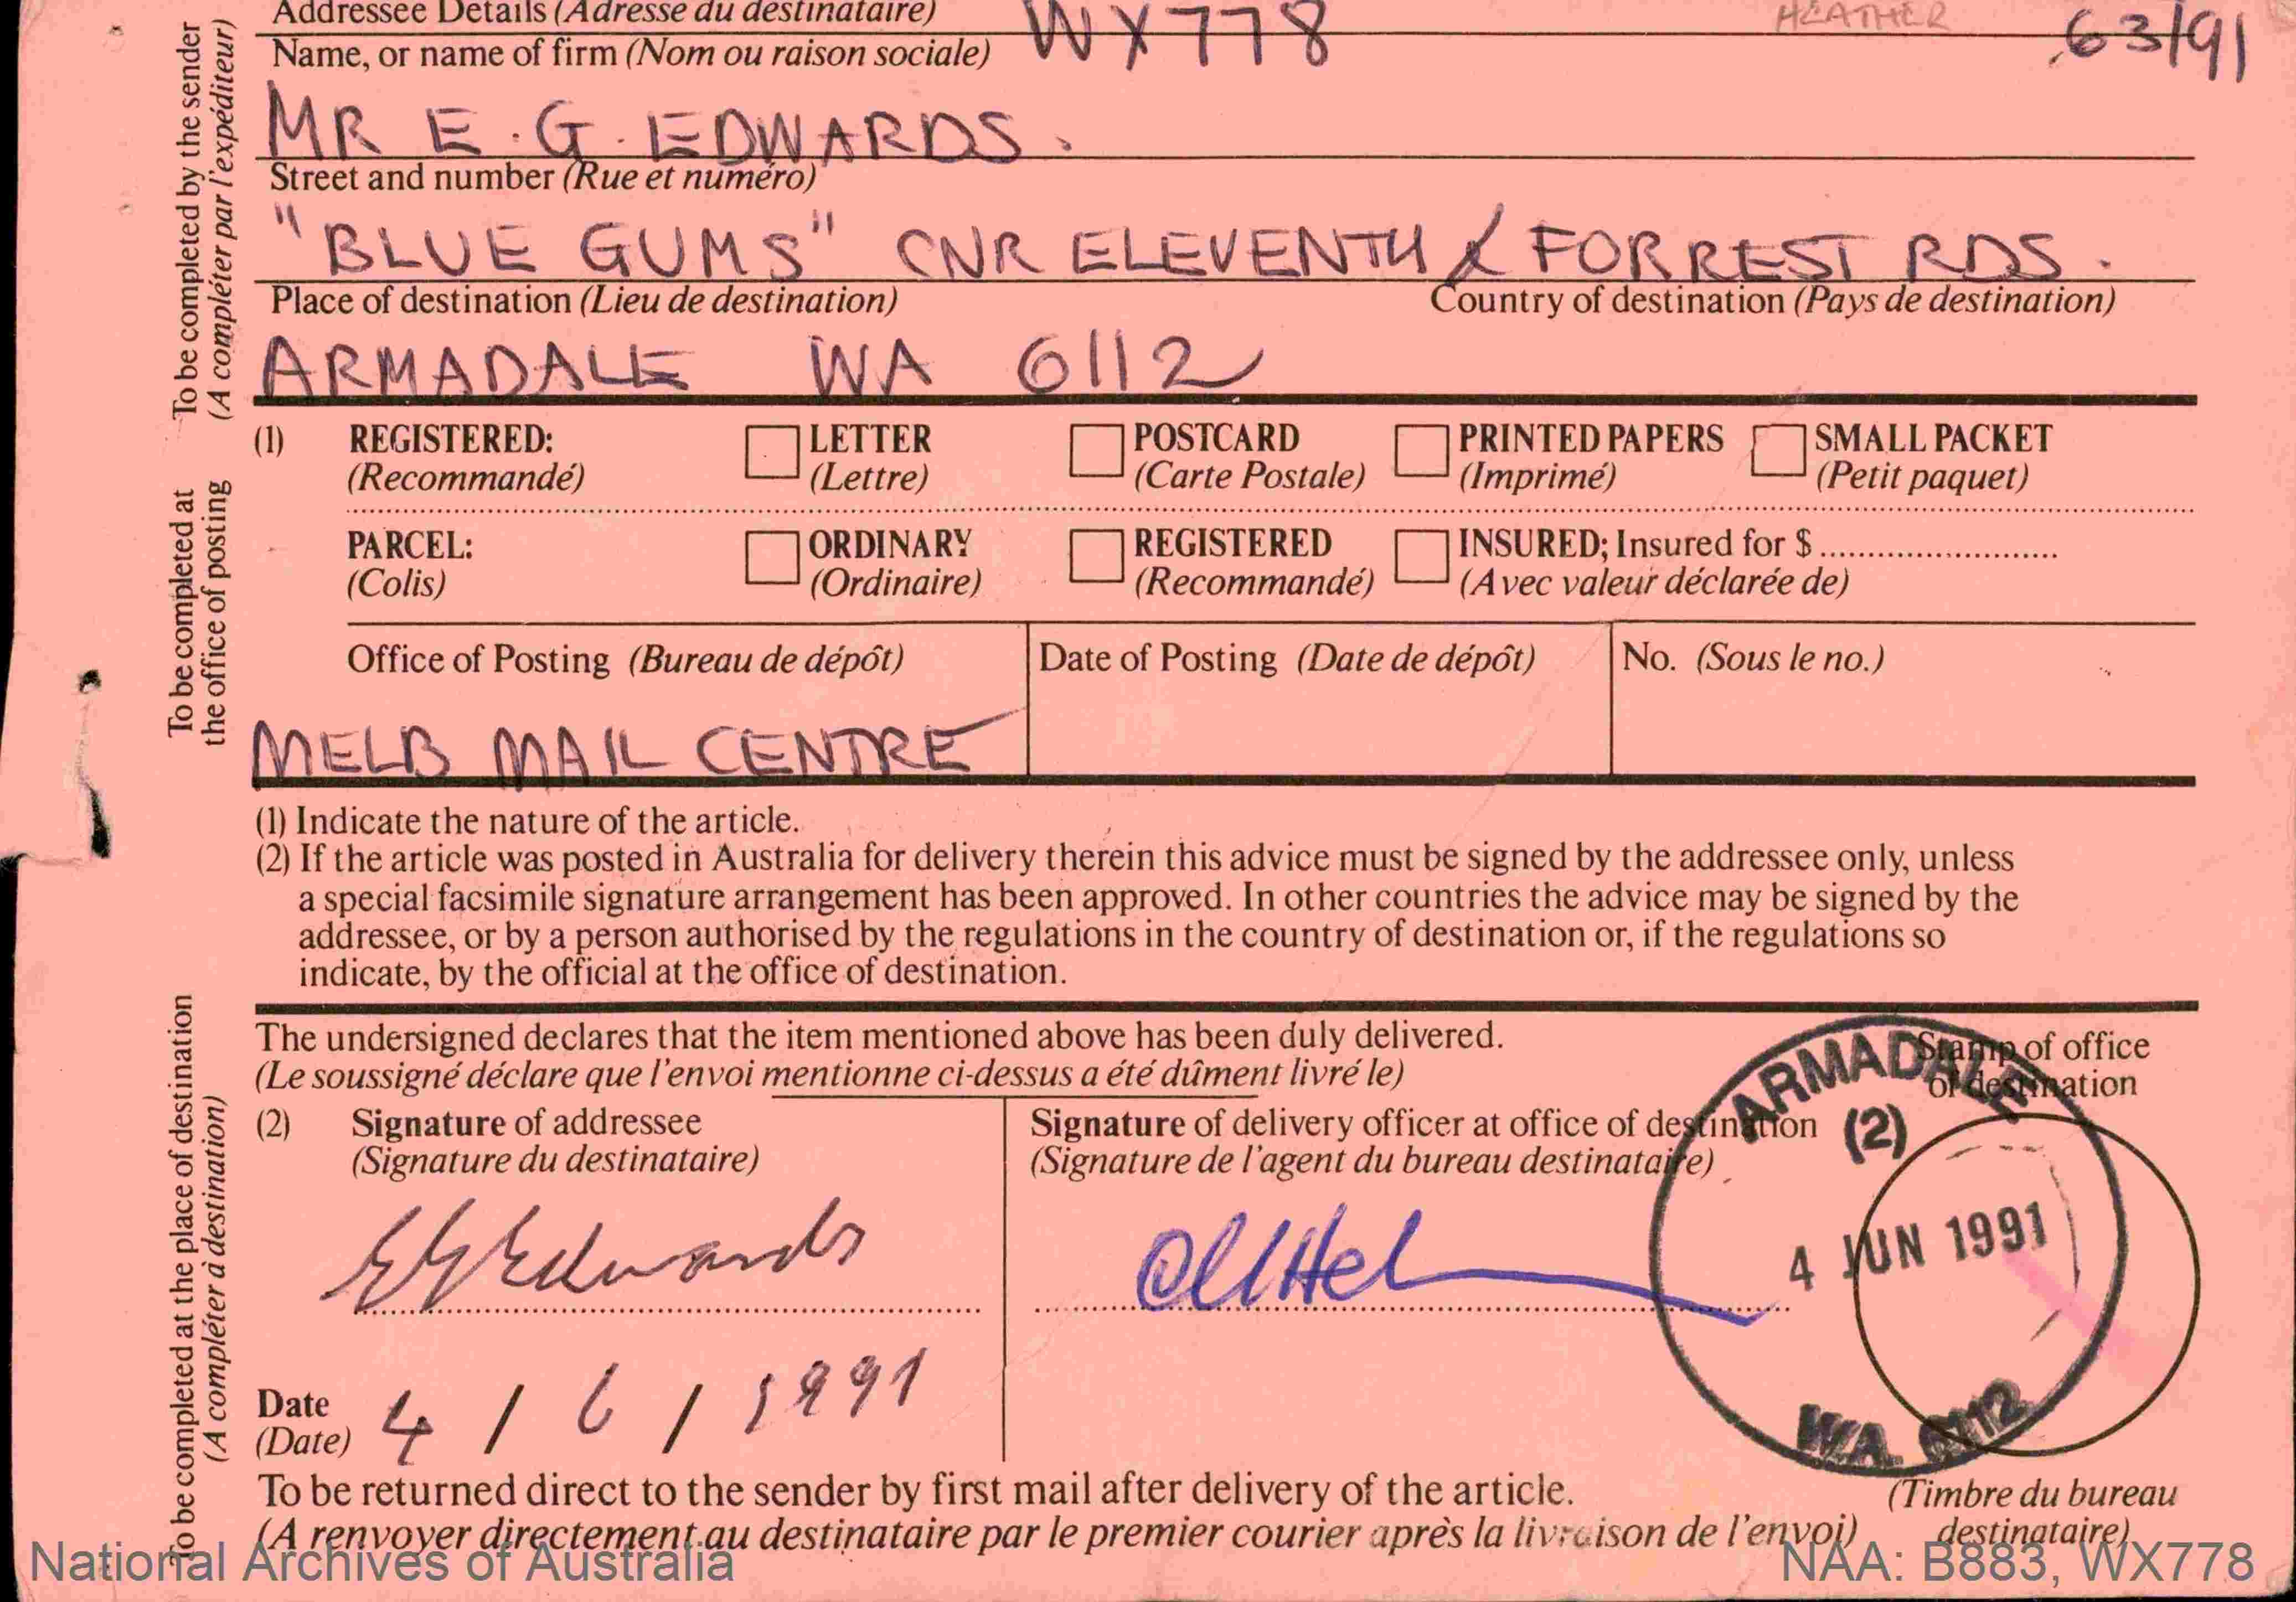 Addressee Details (Adresse du destinataire)
HEATHER
WX778
63/91
Name, or name of firm (Nom ou raison sociale)
MR E.G. EDWARDS.
Street and number (Rue et numéro)
"BLUE GUMS" CNR ELEVENTH & FORREST RDS.
Place of destination (Lieu de destination) Country of destination (Pays de destination)
ARMADALE WA 6112
To be completed by the sender
(A compléter par l'expéditeur)
(1) REGISTERED: LETTER POSTCARD PRINTED PAPERS SMALL PACKET
(Recommandé) (Lettre) (Carte Postale) (Imprimé) (Petit paquet)
PARCEL: ORDINARY REGISTERED INSURED; Insured for $
(Colis) (Ordinaire) (Recommandé) (Avec valeur déclarée de)
Office of Posting (Bureau de dépôt) Date of Posting (Date de dépôt) No. (Sous le no.)
MELB MAIL CENTRE
To be completed at
the office of posting
(1) Indicate the nature of the article.
(2) If the article was posted in Australia for delivery therein this advice must be signed by the addressee only, unless
a special facsimile signature arrangement has been approved. In other countries the advice may be signed by the
addressee, or by a person authorised by the regulations in the country of destination or, if the regulations so
indicate, by the official at the office of destination.
The undersigned declares that the item mentioned above has been duly delivered.
(Le soussigné déclare que l'envoi mentionne ci-dessus a été dûment livré le)
Stamp of office
of destination
(2) Signature of addressee Signature of delivery officer at office of destination
(Signature du destinataire) (Signature de l'agent du bureau destinataire)
EGEdwards
ARMADALE
(2)
4 JUN 1991
WA 6112
Date 4 / 6 / 1991
(Date)
To be completed at the place of destination
(A compléter à destination)
To be returned direct to the sender by first mail after delivery of the article.
(A renvoyer directement au destinataire par le premier courier après la livraison de l'envoi)
(Timbre du bureau
destinataire)
National Archives of Australia NAA: B883, WX778